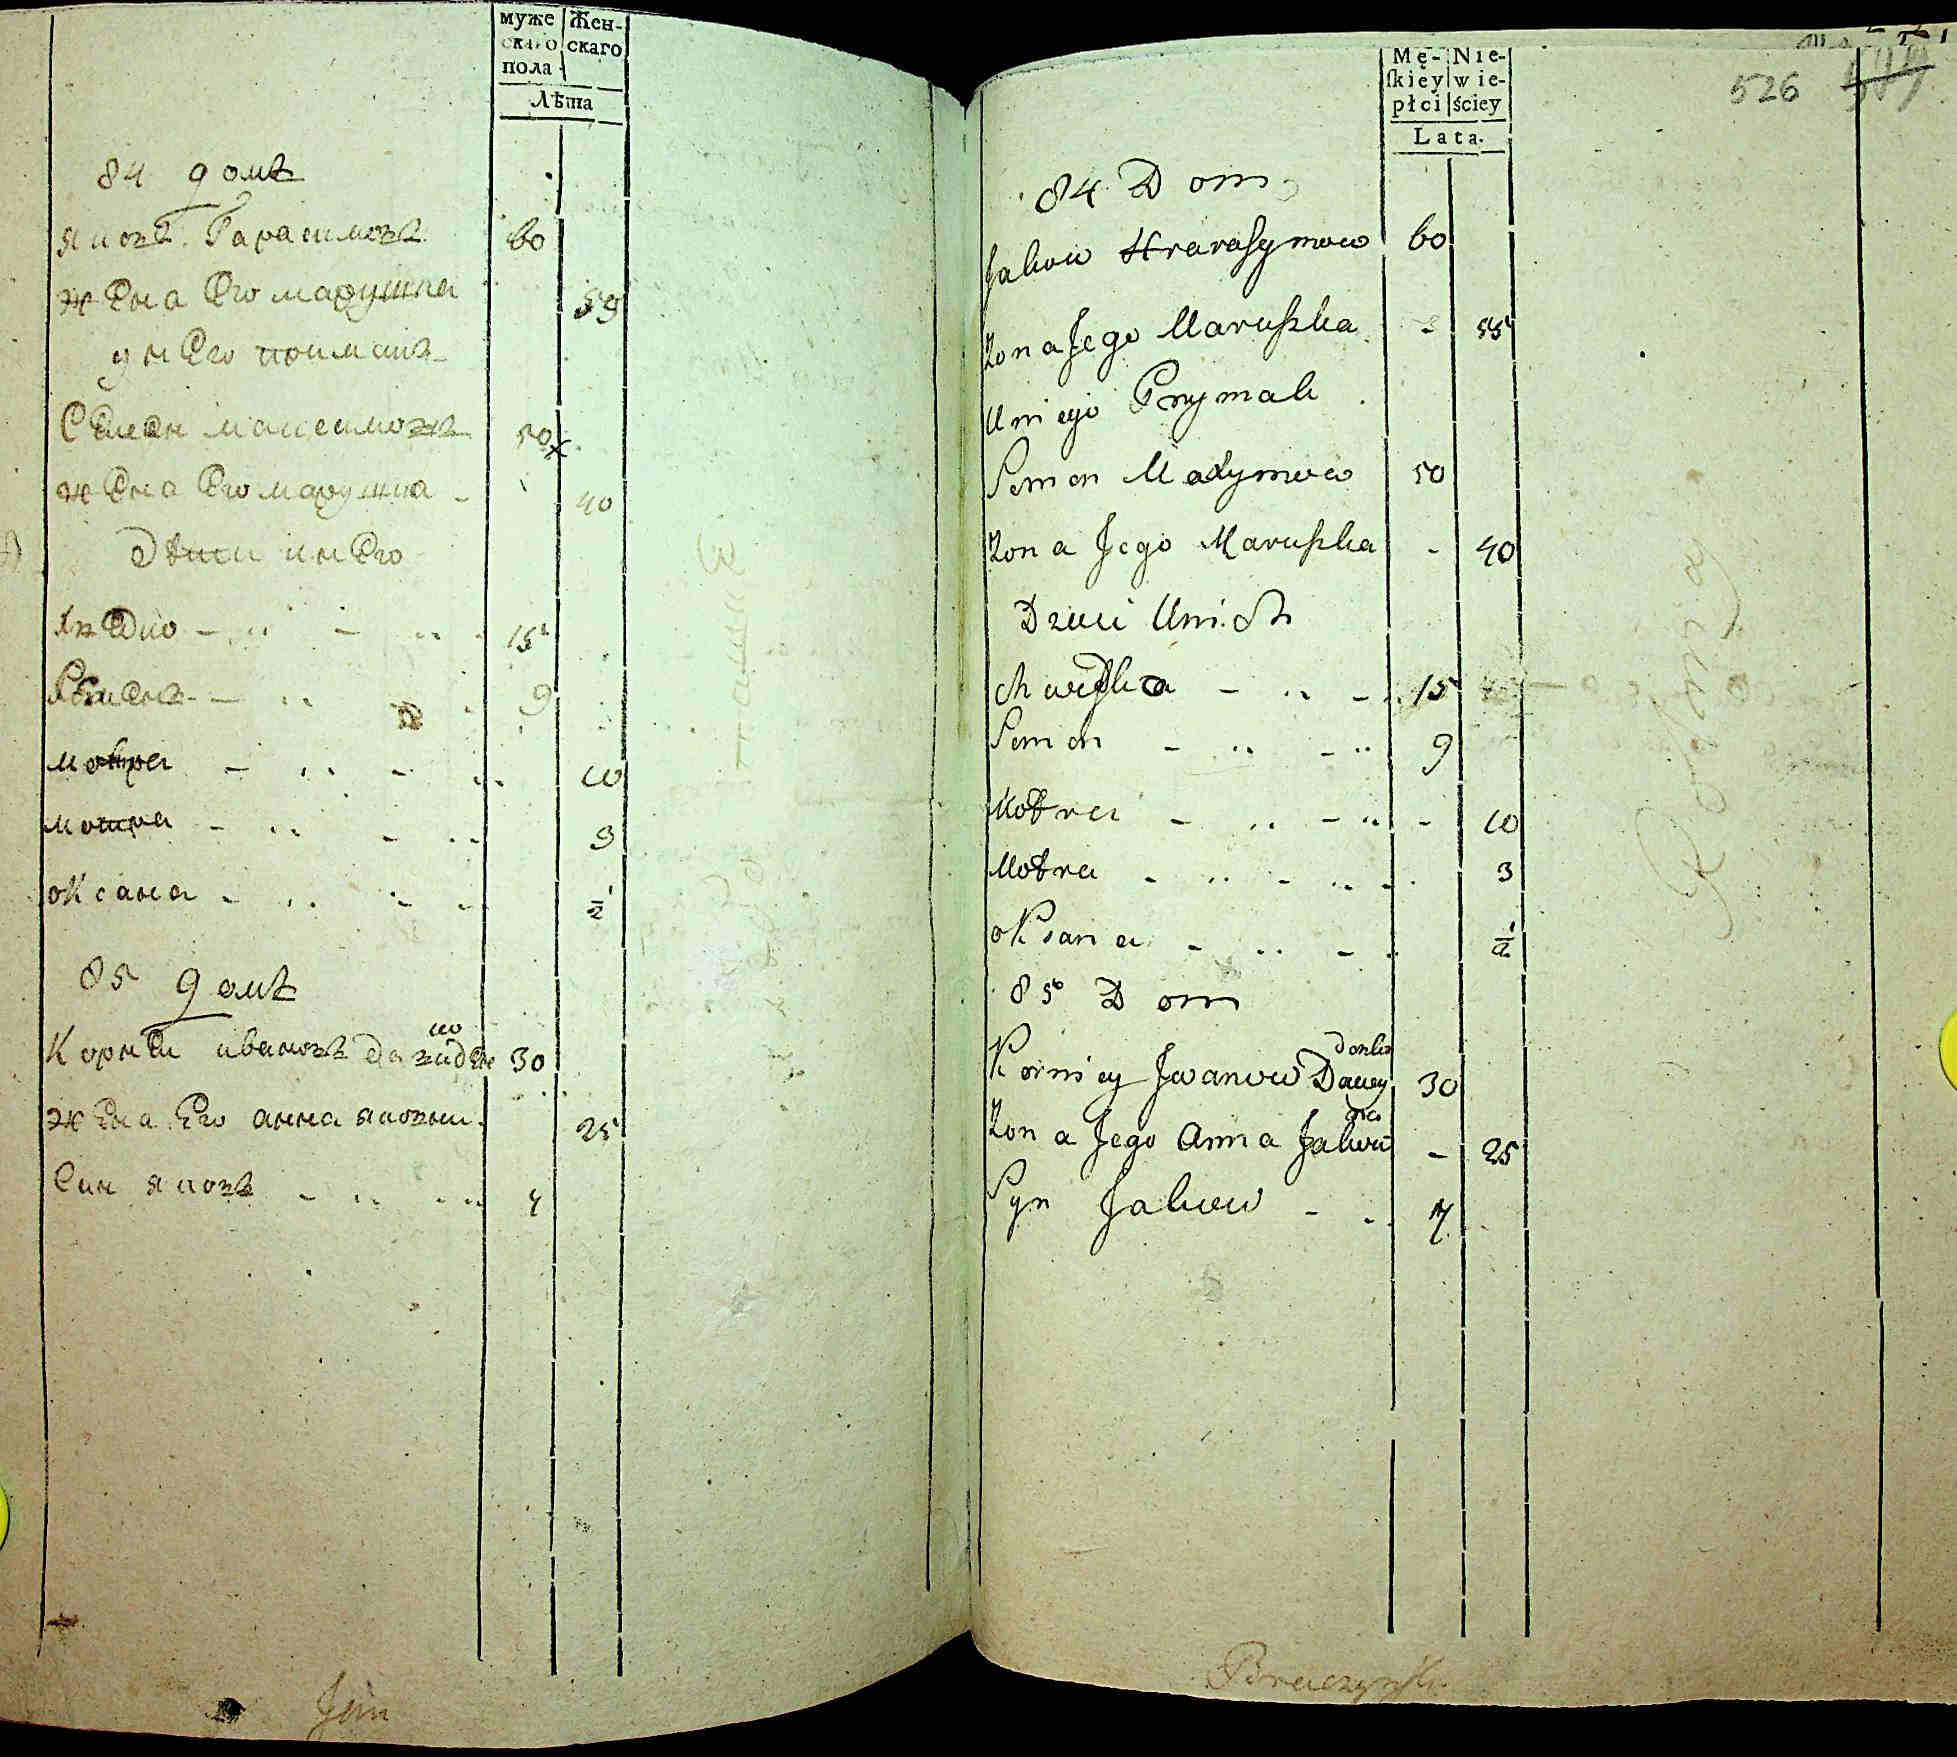 муже
скаго
пола
Жен-
скаго
Лѣта
84 домъ
Яковъ Гарасимовъ 60
жена Его марушка 59
у него приймакъ
Семен максимовъ 50
жена Его марушка - 40
дѣти у него
15
Семенъ - 9
мотра - 10
мотра - 3
оксана - 1/2
85 домъ
Корнѣй ивановъ давиденко 30
жена Его анна яковы 25
Син яковъ - 4
Jan
526
Mę-
skiey
płci
Nie-
wie-
ściey
Lata
84 Dom
Jakow Harasymow 60
Zona Jego Maruszka - 55
U niego Prymak
Semen Maxymow 50
Zona Jego Maruszka - 40
Dzieci U nich
15
Semen - 9
Motra - 10
Motra - 3
oksana - 1/2
85 Dom
Korniey Iwanow Daweydenko 30
Zona Jego Anna Jakowowna - 25
Syn Jakow - 4